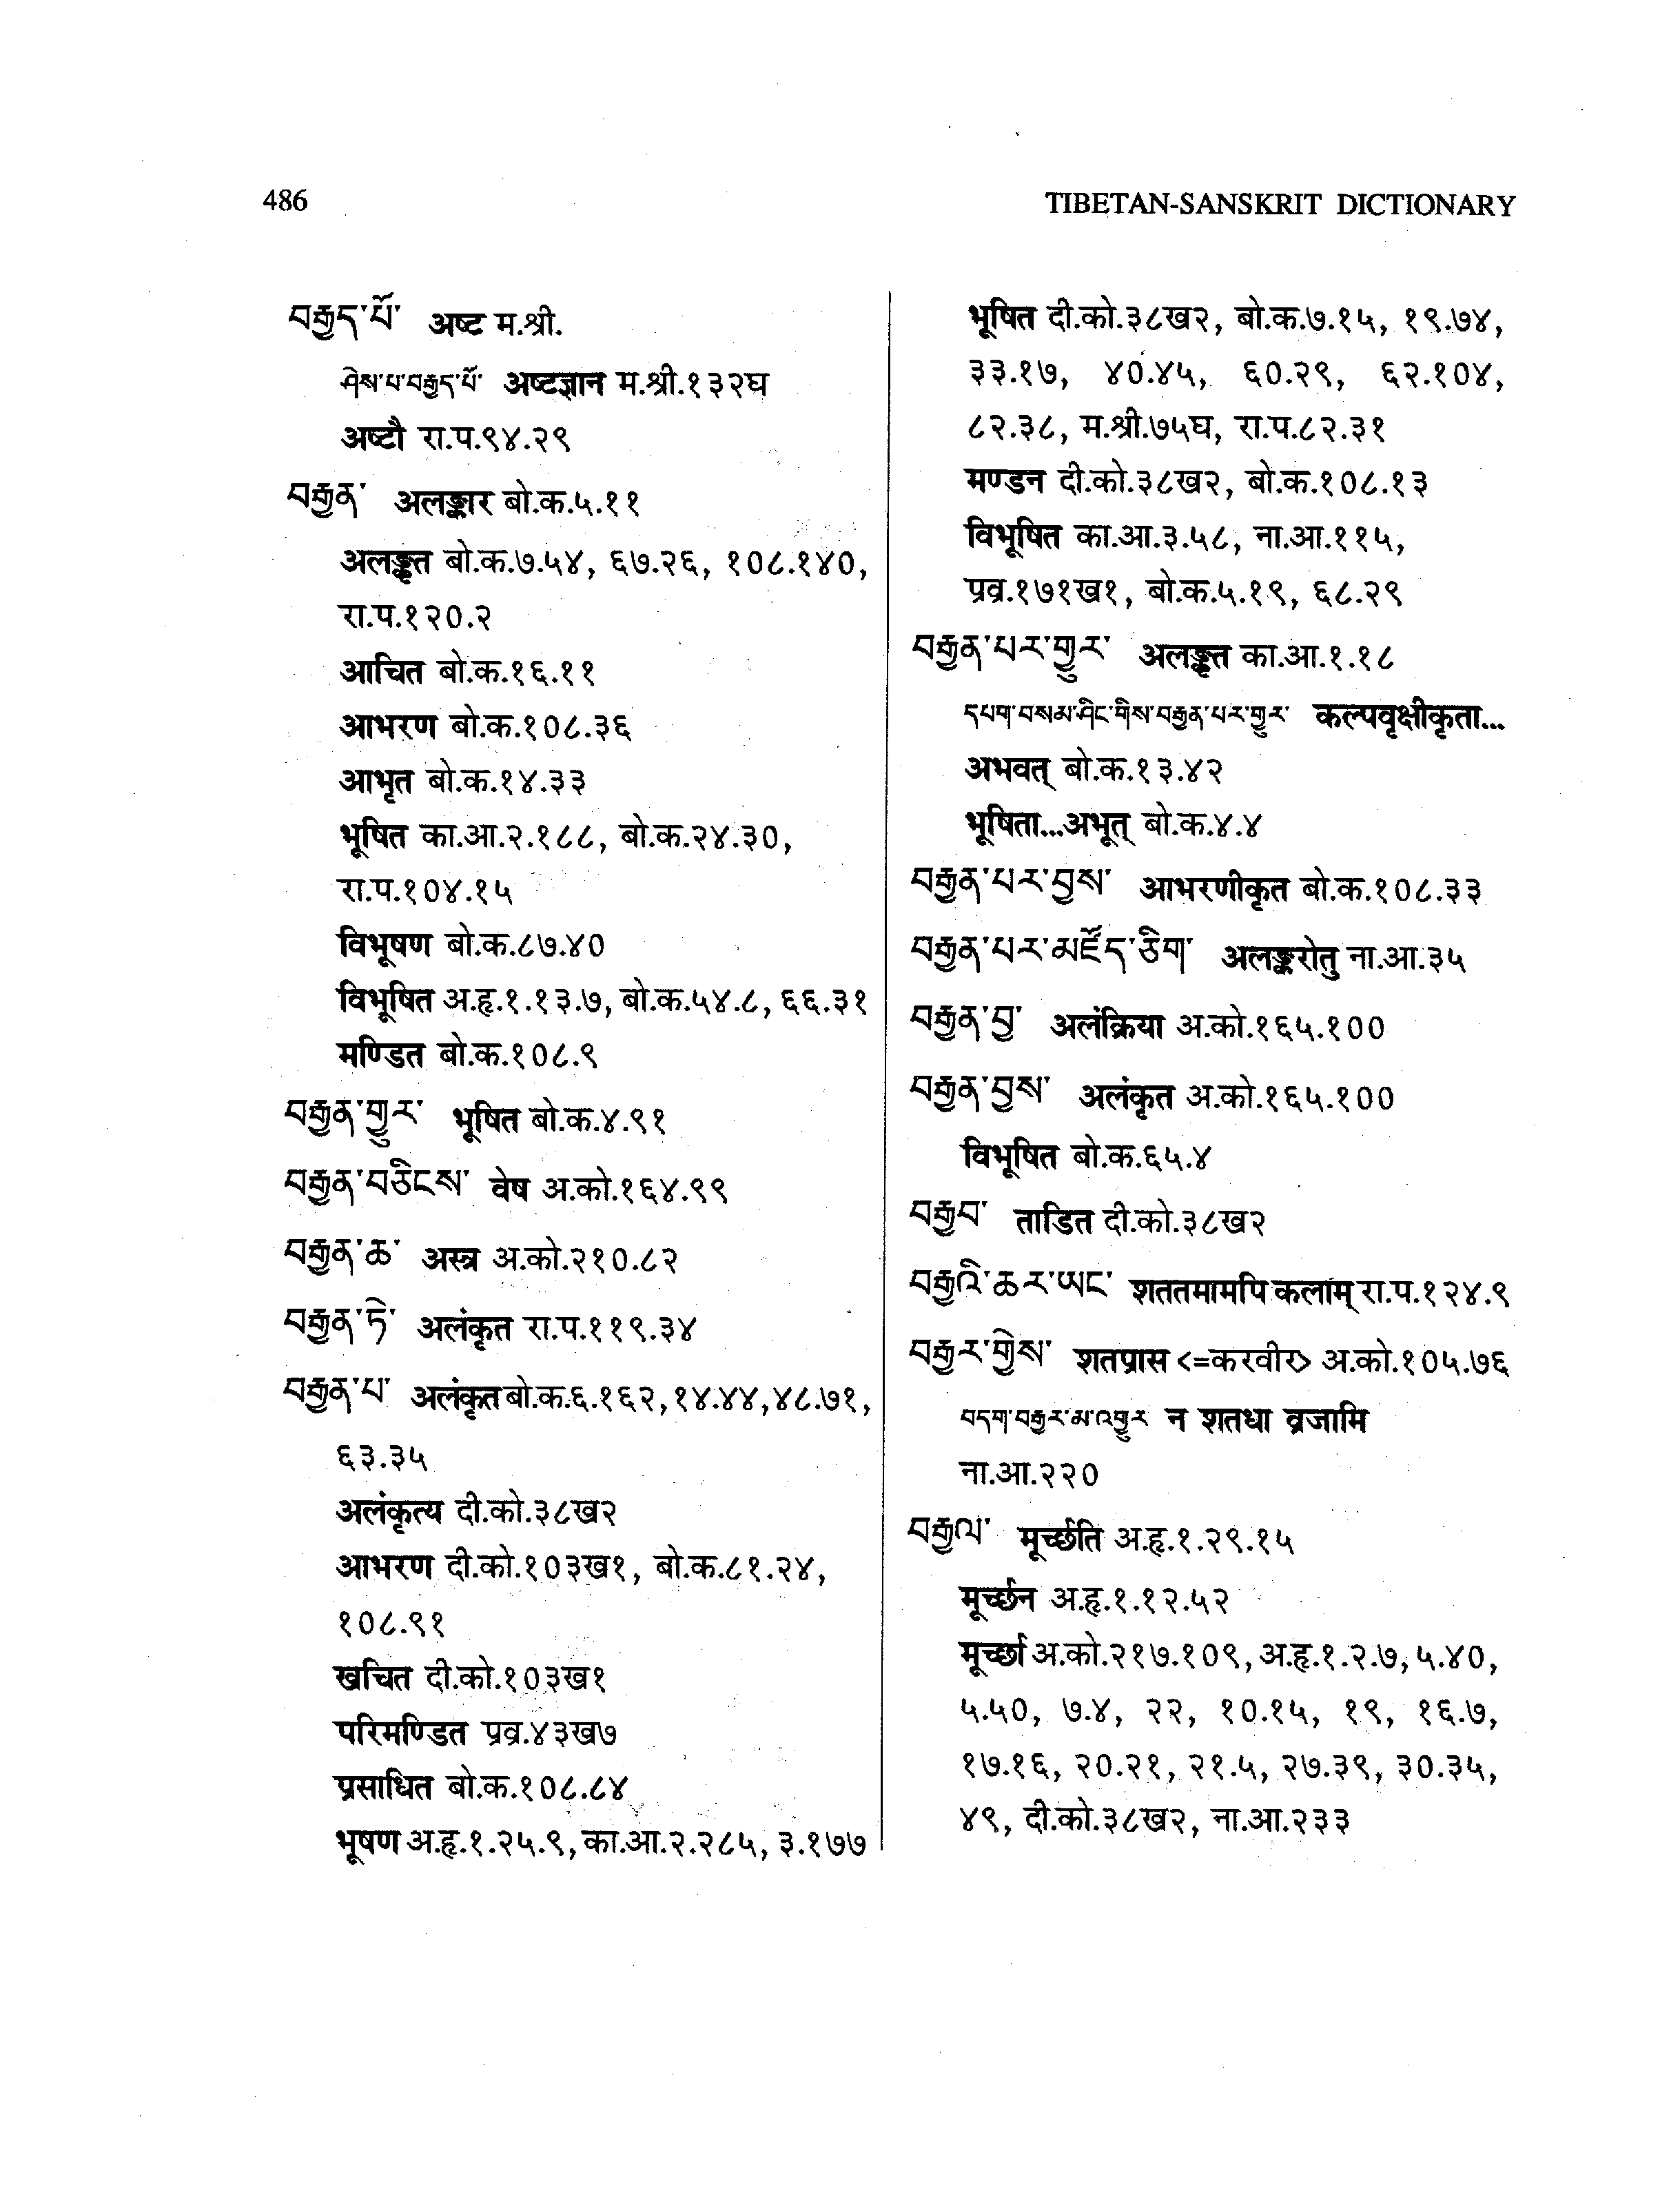 486
TIBETAN-SANSKRIT DICTIONARY
བརྒྱད་པོ་ अष्ट म.श्री.
ཤེས་པ་བརྒྱད་པོ་ अष्टज्ञान म.श्री.१३२घ
अष्टौ रा.प.९४.२९
བརྒྱན་ अलङ्कार बो.क.५.११
अलङ्कृत बो.क.७.५४, ६७.२६, १०८.१४०,
रा.प.१२०.२
आचित बो.क.१६.११
आभरण बो.क.१०८.३६
आभृत बो.क.१४.३३
भूषित का.आ.२.१८८, बो.क.२४.३०,
रा.प.१०४.१५
विभूषण बो.क.८७.४०
विभूषित अ.हृ.१.१३.७, बो.क.५४.८, ६६.३१
मण्डित बो.क.१०८.९
བརྒྱན་གྱུར་ भूषित बो.क.४.९१
བརྒྱན་བཅིངས་ वेष अ.को.१६४.९९
བརྒྱན་ཆ་ अस्त्र अ.को.२१०.८२
བརྒྱན་ཏེ་ अलंकृत रा.प.११९.३४
བརྒྱན་པ་ अलंकृत बो.क.६.१६२, १४.४४, ४८.७१,
६३.३५
अलंकृत्य दी.को.३८ख२
आभरण दी.को.१०३ख१, बो.क.८१.२४,
१०८.९१
खचित दी.को.१०३ख१
परिमण्डित प्रव्र.४३ख७
प्रसाधित बो.क.१०८.८४
भूषण अ.हृ.१.२५.९, का.आ.२.२८५, ३.१७७
भूषित दी.को.३८ख२, बो.क.७.१५, १९.७४,
३३.१७, ४०.४५, ६०.२९, ६२.१०४,
८२.३८, म.श्री.७५घ, रा.प.८२.३१
मण्डन दी.को.३८ख२, बो.क.१०८.१३
विभूषित का.आ.३.५८, ना.आ.११५,
प्रव्र.१७१ख१, बो.क.५.१९, ६८.२९
བརྒྱན་པར་གྱུར་ अलङ्कृत का.आ.१.१८
དཔག་བསམ་ཤིང་གིས་བརྒྱན་པར་གྱུར་ कल्पवृक्षीकृता...
अभवत् बो.क.१३.४२
भूषिता...अभूत् बो.क.४.४
བརྒྱན་པར་བྱས་ आभरणीकृत बो.क.१०८.३३
བརྒྱན་པར་མཛོད་ཅིག་ अलङ्करोतु ना.आ.३५
བརྒྱན་བྱ་ अलंक्रिया अ.को.१६५.१००
བརྒྱན་བྱས་ अलंकृत अ.को.१६५.१००
विभूषित बो.क.६५.४
བརྒྱབ་ ताडित दी.को.३८ख२
བརྒྱའི་ཆར་ཡང་ शततमामपि कलाम् रा.प.१२४.९
བརྒྱར་གྱེས་ शतप्रास <=करवीर> अ.को.१०५.७६
བདག་བརྒྱར་མ་འགྱུར न शतधा व्रजामि
ना.आ.२२०
བརྒྱལ་ मूर्च्छति अ.हृ.१.२९.१५
मूर्च्छन अ.हृ.१.१२.५२
मूर्च्छा अ.को.२१७.१०९, अ.हृ.१.२.७, ५.४०,
५.५०, ७.४, २२, १०.१५, १९, १६.७,
१७.१६, २०.२१, २१.५, २७.३९, ३०.३५,
४९, दी.को.३८ख२, ना.आ.२३३